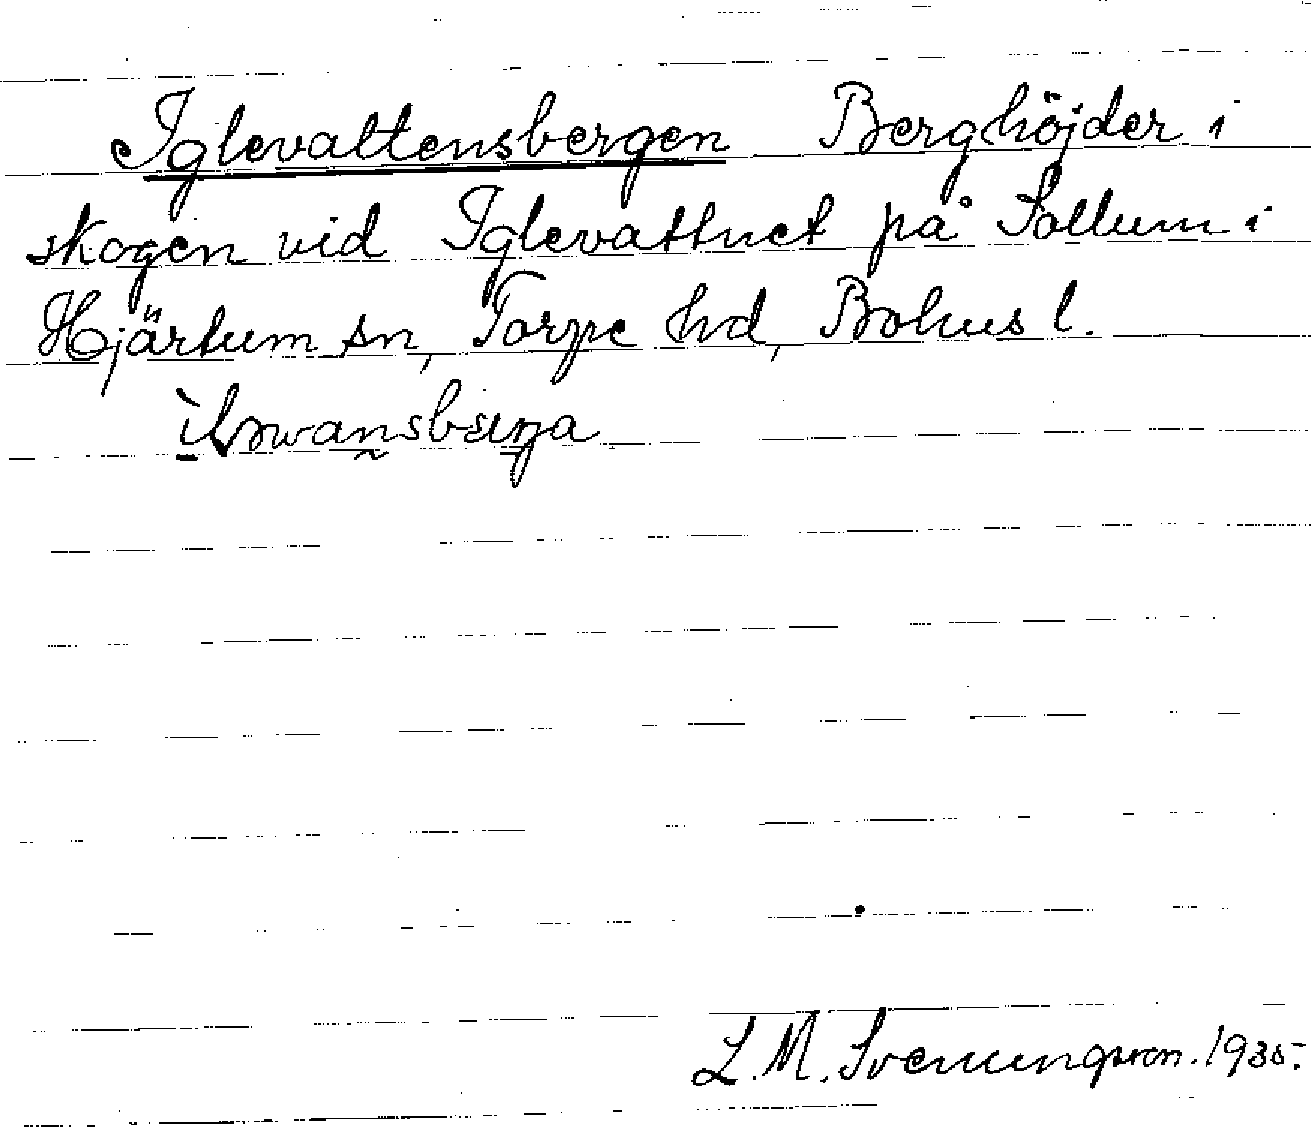 Iglevattensbergen Berghöjder i
skogen vid Iglevattnet på Sollum i
Hjärtum sn, Torpe hd, Bohus l.
L. M. Svenungsson. 1935.